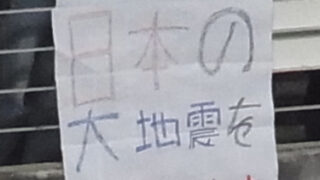 日本の
大地震を